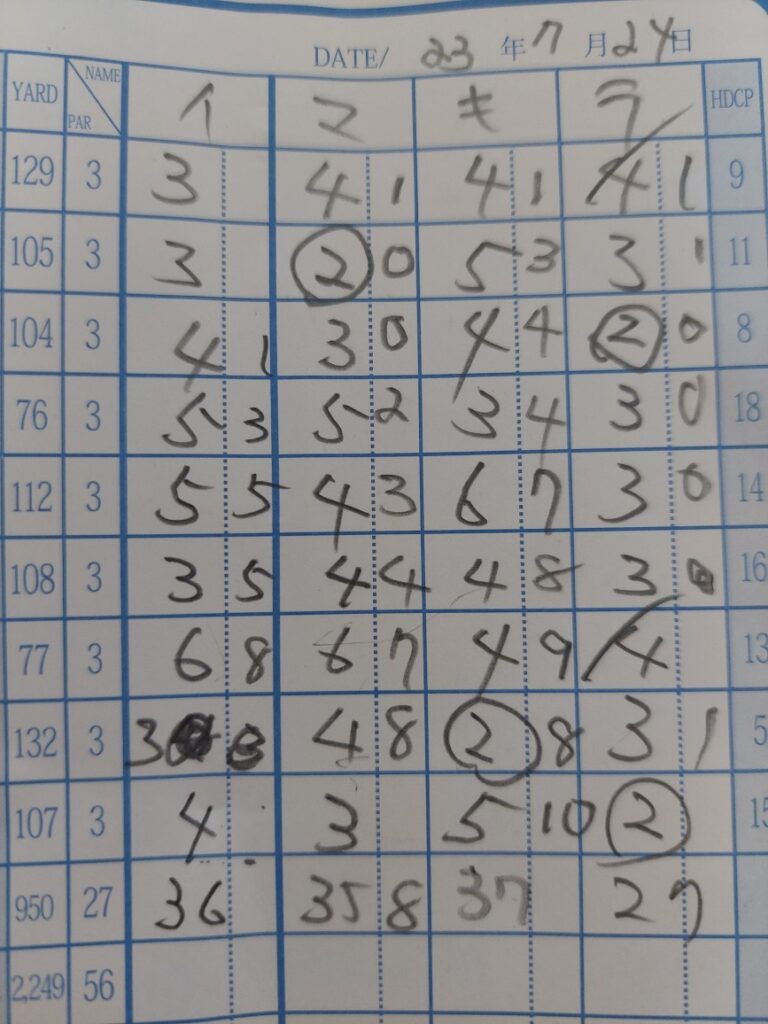 DATE/ 23 年 7 月 24 日
YARD NAME PAR イ マ キ ラ HDCP
129 3 3 4 1 4 1 4 1 9
105 3 3 2 0 5 3 3 1 11
104 3 4 1 3 0 4 4 2 0 8
76 3 5 3 5 2 3 4 3 0 18
112 3 5 5 4 3 6 7 3 0 14
108 3 3 5 4 4 4 8 3 16
77 3 6 8 6 7 4 9 4 13
132 3 3 8 4 8 2 8 3 1 5
107 3 4 3 5 10 2 15
950 27 36 35 8 37 27
2,249 56